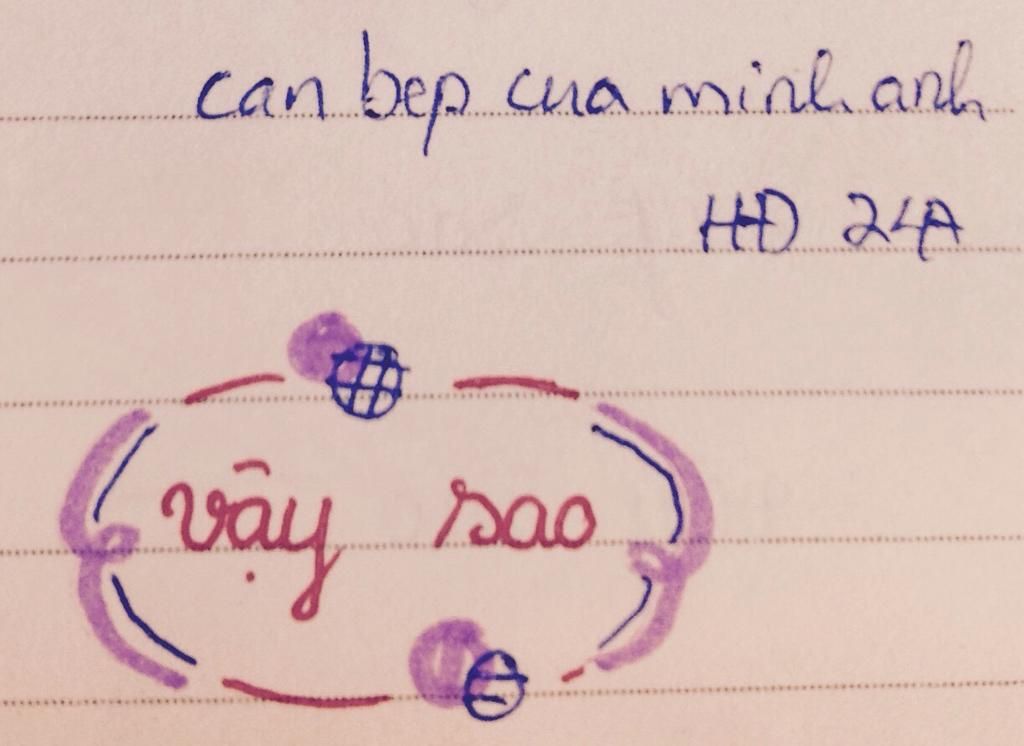 can bep cua minh anh
HĐ 24A
vậy sao